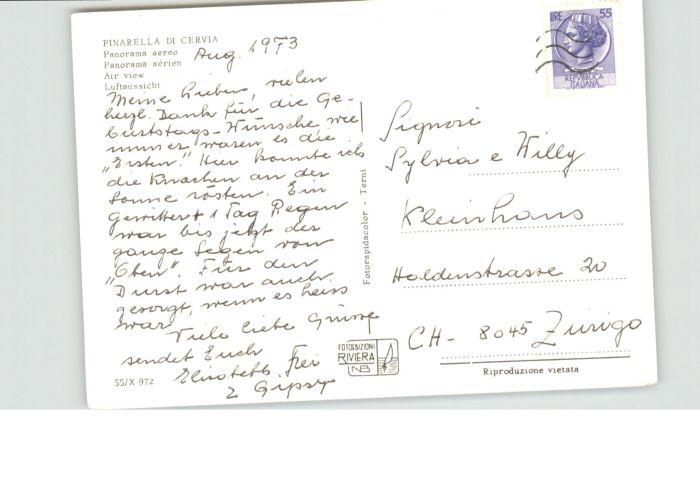 PINARELLA DI CERVIA
Panorama aereo
Panorama aérien
Air view
Luftaussicht
Aug. 1973
Meine Lieben, vielen
herzl. Dank für die Ge-
burtstags-Wünsche wie
immer waren es die
„Ersten." Hier konnte ich
die Knochen an der
Sonne rösten. Ein
Gewitter + 1 Tag Regen
war bis jetzt der
ganze Segen von
„Oben". Für den
Durst war auch
gesorgt, wenn es heiss
war.
Viele liebe Grüsse
sendet Euch
Elisabeth Frei
& Gipsy
55/X 972
Fotorapidacolor - Terni
FOTOEDIZIONI
RIVIERA
LIRE 55
REPVBBLICA
ITALIANA
Signori
Sylvia e Willy
Kleinhans
Haldenstrasse 20
CH- 8045 Zürigo
Riproduzione vietata